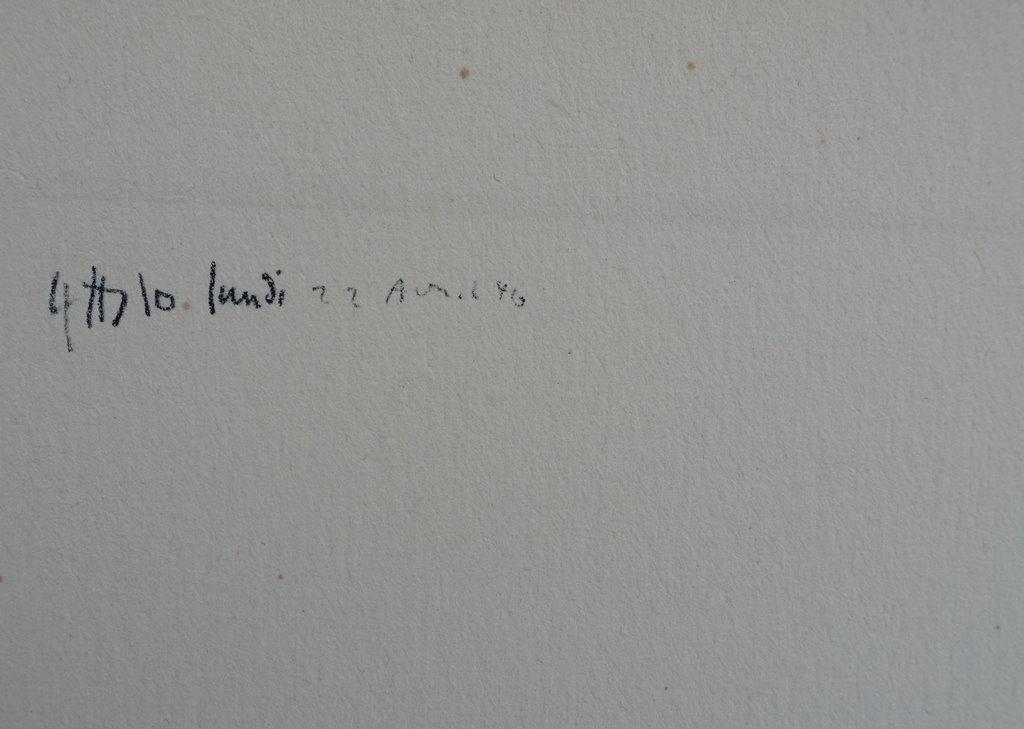 4 H 10 lundi 22 Avril 46